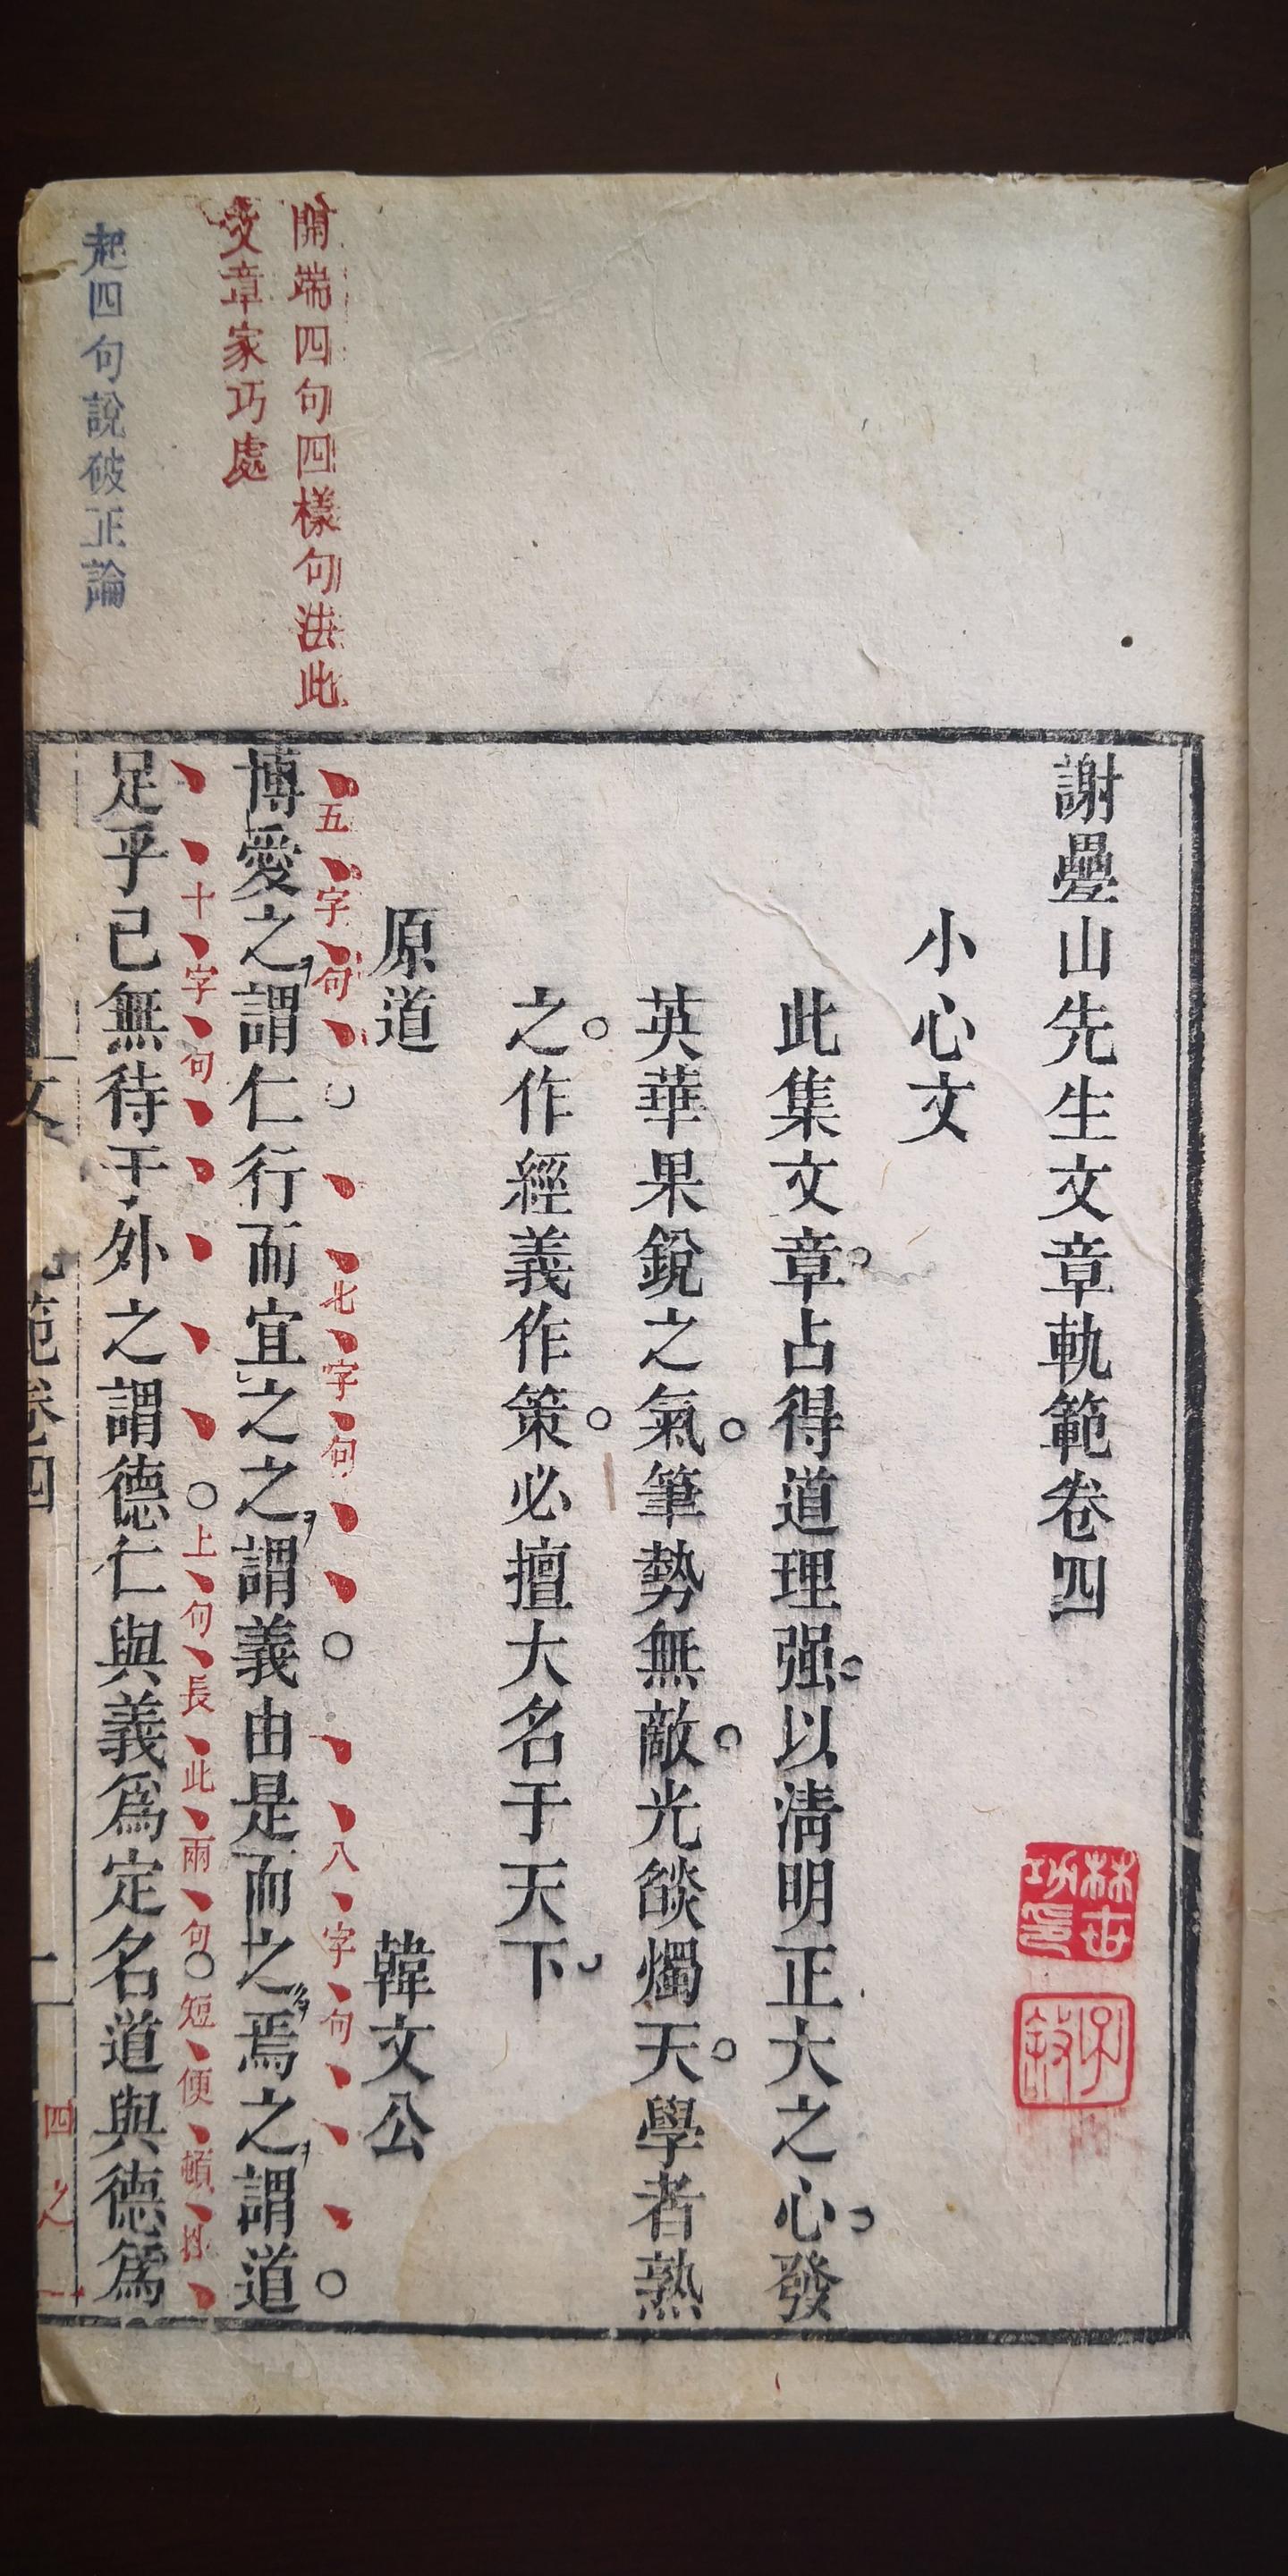 謝疊山先生文章軌範卷四
林世功印
子叙
小心文
此集文章占得道理强以淸明正大之心發
英華果銳之氣筆勢無敵光燄燭天學者熟
之作經義作策必擅大名于天下
原道 韓文公
開端四句四樣句法此
文章家巧處
五字句 七字句 八字句
博愛之謂仁行而宜之之謂義由是而之焉之謂道
十字句 上句長此兩句短便頓挫
足乎己無待于外之謂德仁與義爲定名道與德爲
起四句說破正論
文 範卷四 一
四之一